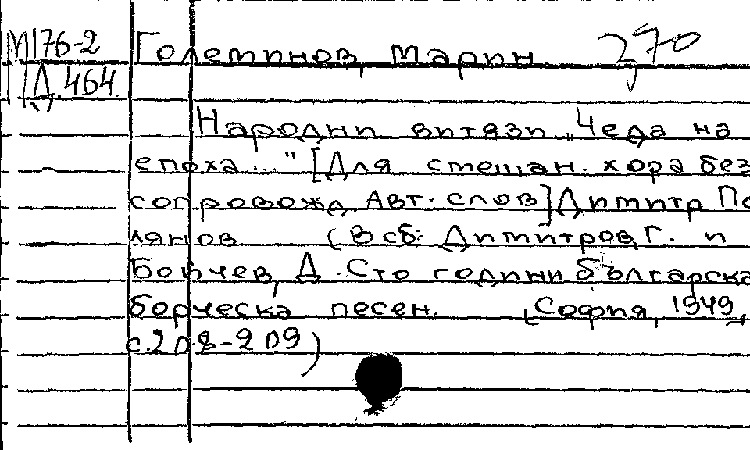 М176-2 Големинов, Марин 270
Д. 464.
Народни витязи „Чеда на
епоха..." [Для смешан. хора без
сопровожд. Авт. слов] Димитр По
лянов (В сб: Димитров, Г. и
Бойчев, Д. Сто години българска
борческа песен. [София, 1949,
с. 208-209)